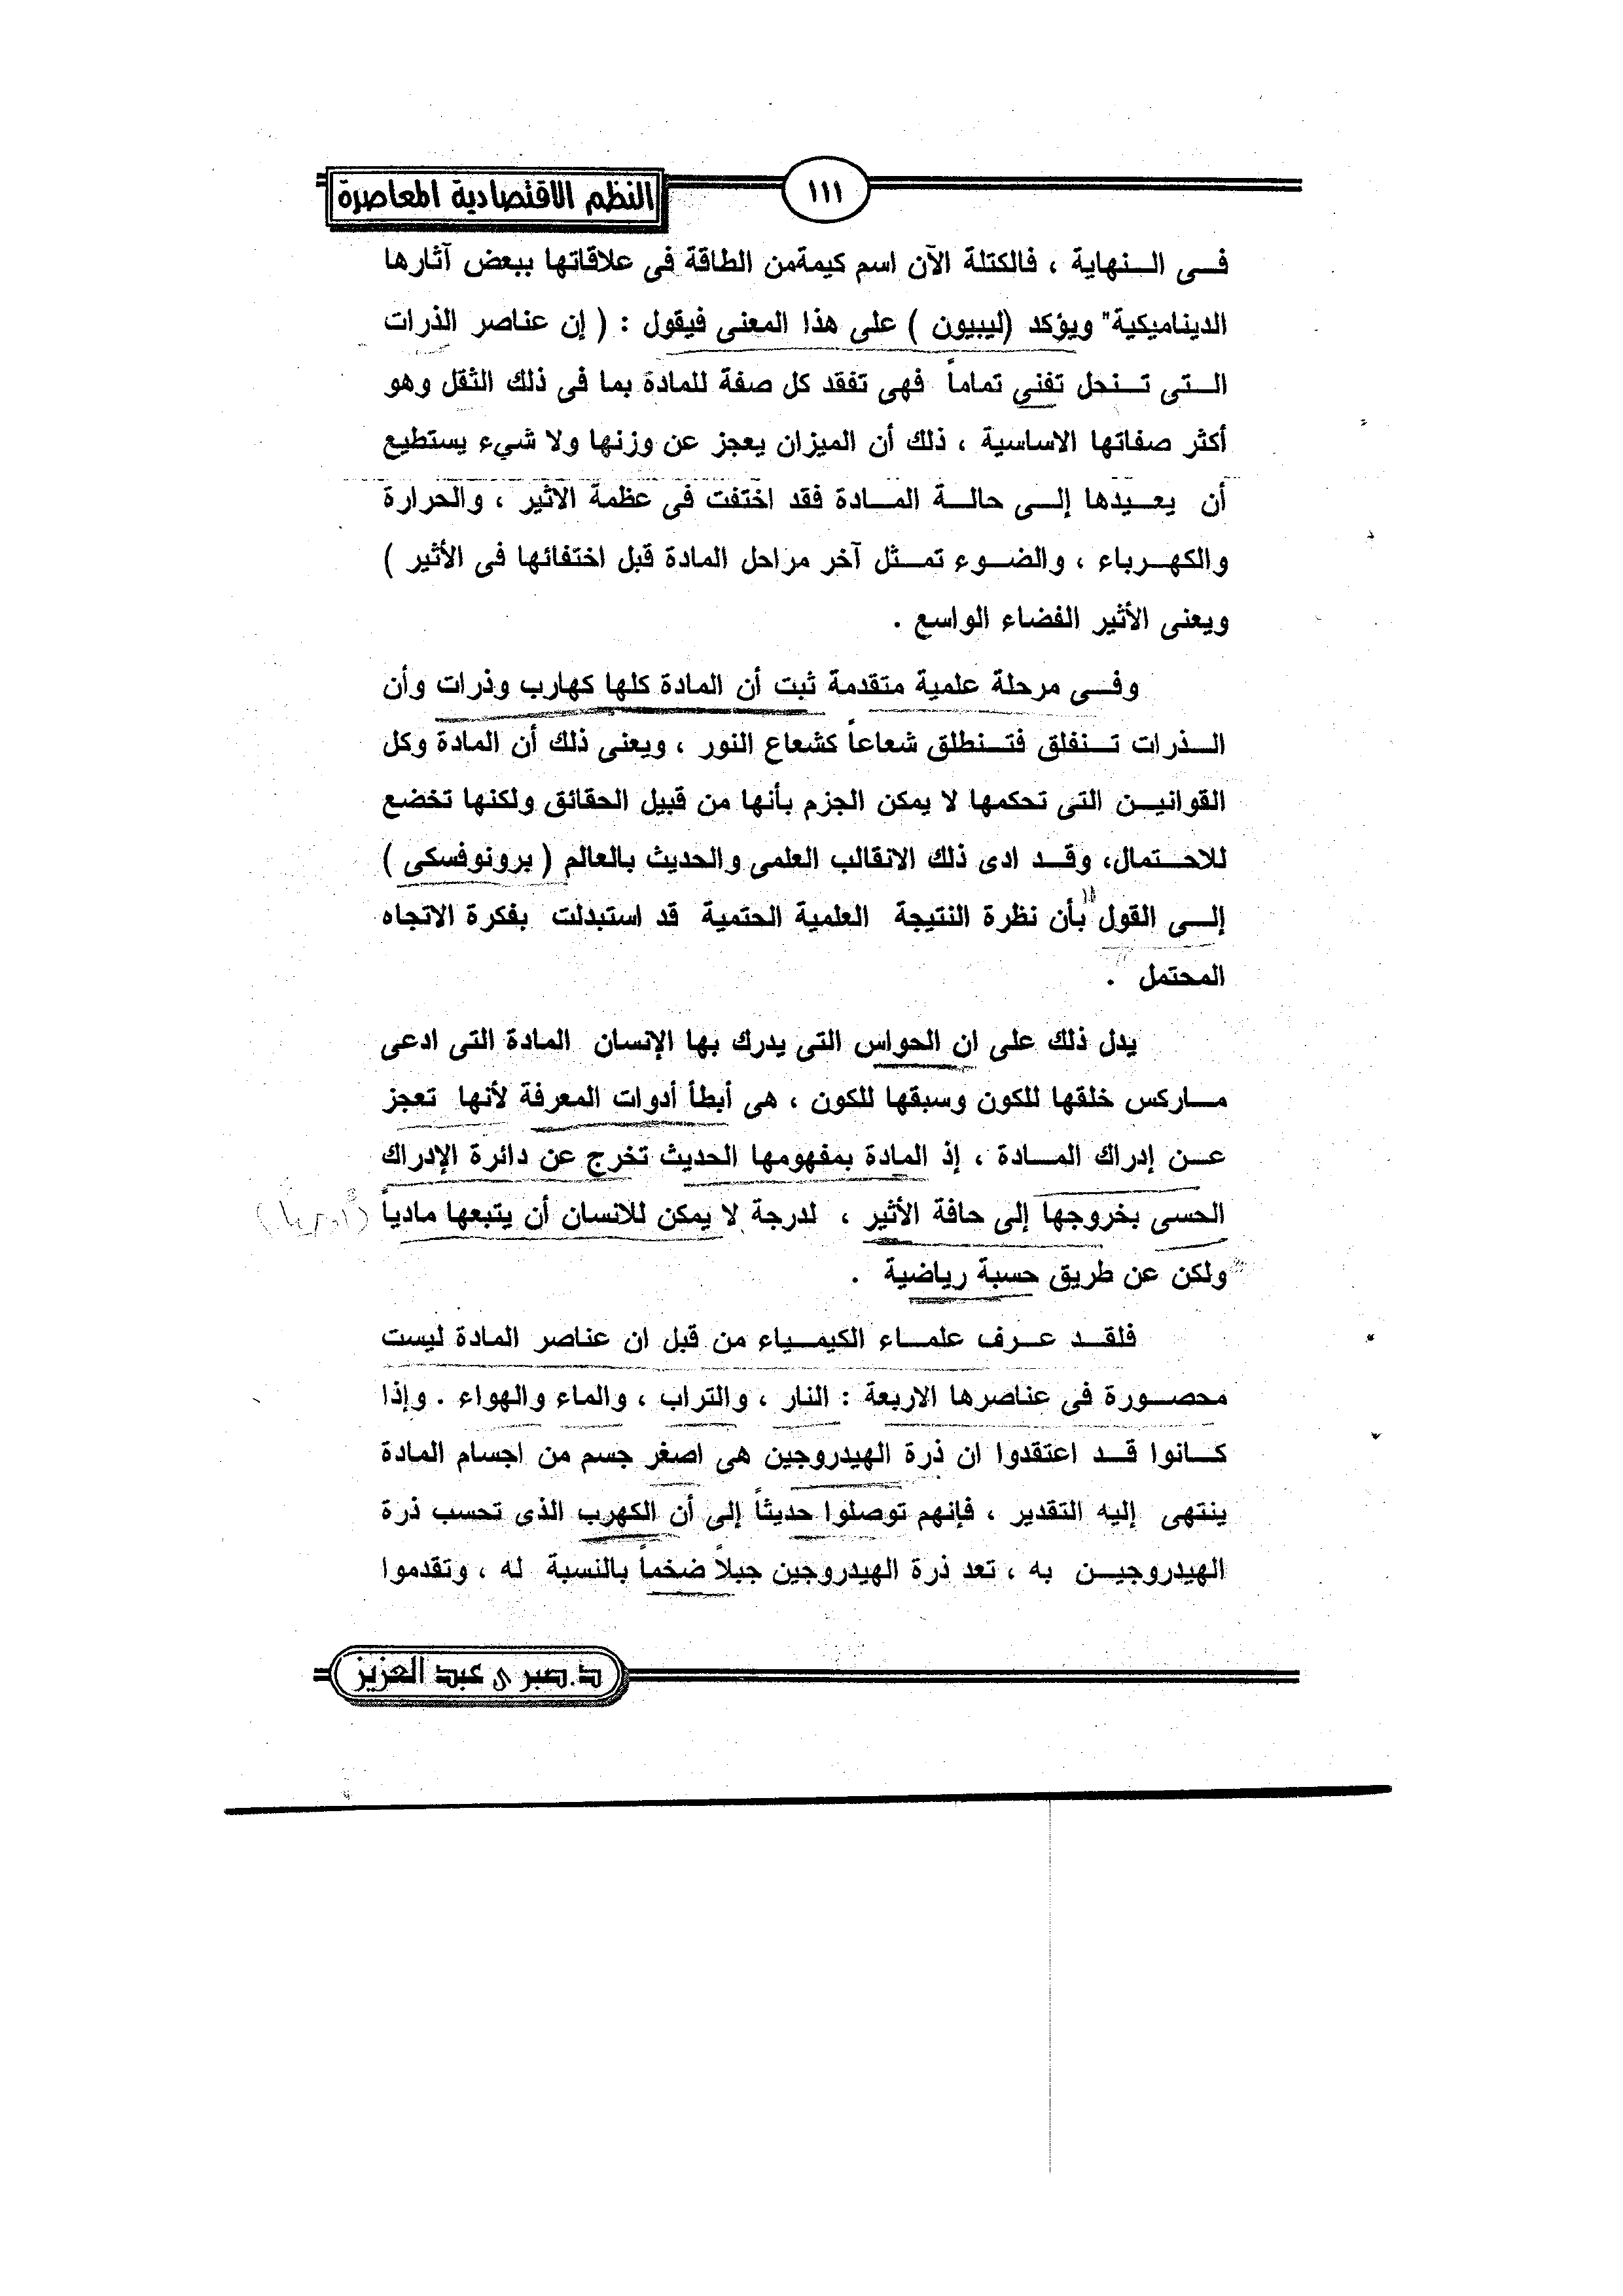 النظم الاقتصادية المعاصرة
١١١
فى النهاية ، فالكتلة الآن اسم كيمةمن الطاقة فى علاقاتها ببعض آثارها
الديناميكية" ويؤكد (ليبيون ) على هذا المعنى فيقول : ( إن عناصر الذرات
التى تنحل تفنى تماماً فهى تفقد كل صفة للمادة بما فى ذلك الثقل وهو
أكثر صفاتها الاساسية ، ذلك أن الميزان يعجز عن وزنها ولا شيء يستطيع
أن يعيدها إلى حالة المادة فقد اختفت فى عظمة الاثير ، والحرارة
والكهرباء ، والضوء تمثل آخر مراحل المادة قبل اختفائها فى الأثير )
ويعنى الأثير الفضاء الواسع .
وفى مرحلة علمية متقدمة ثبت أن المادة كلها كهارب وذرات وأن
الذرات تنفلق فتنطلق شعاعاً كشعاع النور ، ويعنى ذلك أن المادة وكل
القوانين التى تحكمها لا يمكن الجزم بأنها من قبيل الحقائق ولكنها تخضع
للاحتمال، وقد ادى ذلك الانقالب العلمى والحديث بالعالم ( برونوفسكى )
إلى القول بأن نظرة النتيجة العلمية الحتمية قد استبدلت بفكرة الاتجاه
المحتمل .
يدل ذلك على ان الحواس التى يدرك بها الإنسان المادة التى ادعى
ماركس خلقها للكون وسبقها للكون ، هى أبطأ أدوات المعرفة لأنها تعجز
عن إدراك المادة ، إذ المادة بمفهومها الحديث تخرج عن دائرة الإدراك
الحسى بخروجها إلى حافة الأثير ، لدرجة لا يمكن للانسان أن يتبعها مادياً
ولكن عن طريق حسبة رياضية .
فلقد عرف علماء الكيمياء من قبل ان عناصر المادة ليست
محصورة فى عناصرها الاربعة : النار ، والتراب ، والماء والهواء . وإذا
كانوا قد اعتقدوا ان ذرة الهيدروجين هى اصغر جسم من اجسام المادة
ينتهى إليه التقدير ، فإنهم توصلوا حديثاً إلى أن الكهرب الذى تحسب ذرة
الهيدروجين به ، تعد ذرة الهيدروجين جبلاً ضخماً بالنسبة له ، وتقدموا
د.صبرى عبد العزيز